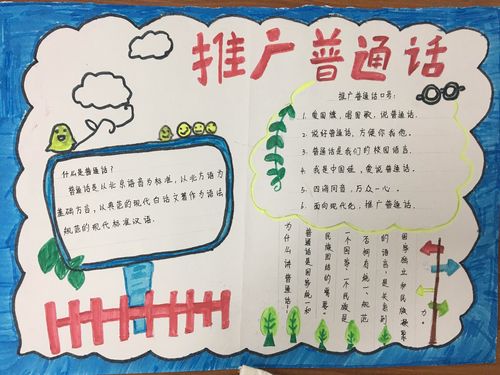 推广普通话
什么是普通话?
普通话是以北京语音为标准,以北方语为
基础方言,以典范的现代白话文著作为语法
规范的现代标准汉语。
推广普通话口号:
1. 爱国旗,唱国歌,说普通话。
2. 说好普通话,方便你我他。
3. 普通话是我们的校园语言.
4. 我是中国娃,爱说普通话。
5. 四海同音,万众一心。
6. 面向现代化,推广普通话。
为什么讲普通话?
普通话是国家统一和
民族团结的
一个国家,一个民族是
否拥有统一、规范
的语言,是关系到
国家独立和民族凝聚
力。